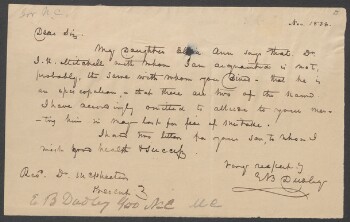 Gov N.C.
Nov. 1836.
Dear Sir,
My Daughter Eliza Ann says that Dr
J. K. Mitchell with whom I am acquainted is not,
probably, the same with whom you dined - that he is
an episcopalian - that there are two of the name.
I have accordingly omitted to allude to your men-
-tioning him in my letter for fear of mistake.
I hand this letter for your son to whom I
wish good health & success
Very respectfy
E B Dudley
Revd. Dr. McPheeters
Present
E B Dudley Gov N.C.